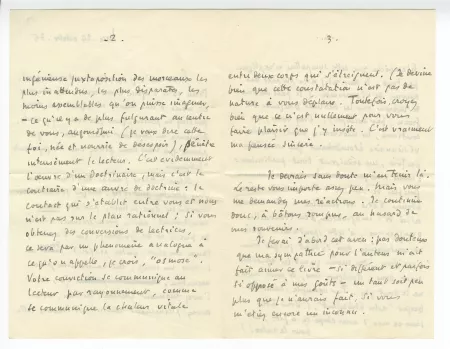 .2.
ingénieuse juxtaposition des morceaux les
plus inattendus, les plus disparates, les
moins assemblables qu'on puisse imaginer,
– ce qu'il y a de plus fulgurant au centre
de vous, aujourd'hui (je veux dire cette
foi, née et nourrie de désespoir), pénètre
intensément le lecteur. C'est évidemment
l'œuvre d'un doctrinaire, mais c'est le
contraire d'une œuvre de doctrine : le
contact qui s'établit entre vous et nous
n'est pas sur le plan rationnel ; si vous
obtenez des conversions de lectrices,
ce sera par un phénomène analogue à
ce qu'on appelle, je crois, "osmose".
Votre conviction se communique au
lecteur par rayonnement, comme
se communique la chaleur vitale
3.
entre deux corps qui s'étreignent. (Je devine
bien que cette constatation n'est pas de
nature à vous déplaire. Toutefois, croyez
bien que ce n'est nullement pour vous
faire plaisir que j'y insiste. C'est vraiment
ma pensée sincère.
Je devrais sans doute m'en tenir là.
Le reste vous importe assez peu. Mais vous
me demandez mes réactions. Je continue
donc, à bâtons rompus, au hasard de
mes souvenirs.
Je ferai d'abord cet aveu : pas douteux
que ma sympathie pour l'auteur m'ait
fait aimer ce livre – si différent et parfois
si opposé à mes goûts – un tant soit peu
plus que je n'aurais fait, si vous
m'étiez encore un inconnu.